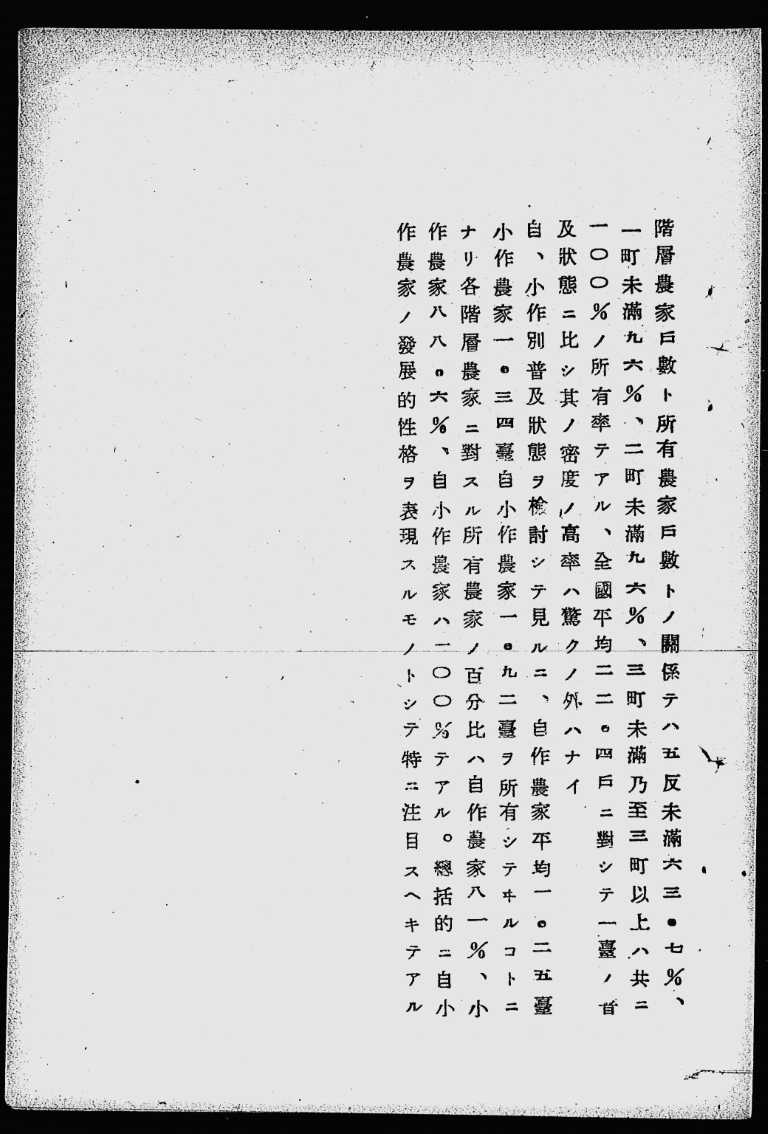 階層農家戶數ト所有農家戶數トノ關係テハ五反未滿六三・七%、
一町未滿九六%、二町未滿九六%、三町未滿乃至三町以上ハ共ニ
一〇〇%ノ所有率テアル、全國平均二二・四戶ニ對シテ一臺ノ普
及狀態ニ比シ其ノ密度ノ高率ハ驚クノ外ハナイ
自、小作別普及狀態ヲ檢討シテ見ルニ、自作農家平均一・二五臺
小作農家一・三四臺自小作農家一・九二臺ヲ所有シテヰルコトニ
ナリ各階層農家ニ對スル所有農家ノ百分比ハ自作農家八一%、小
作農家八八・六%、自小作農家ハ一〇〇%テアル。總括的ニ自小
作農家ノ發展的性格ヲ表現スルモノトシテ特ニ注目スヘキテアル